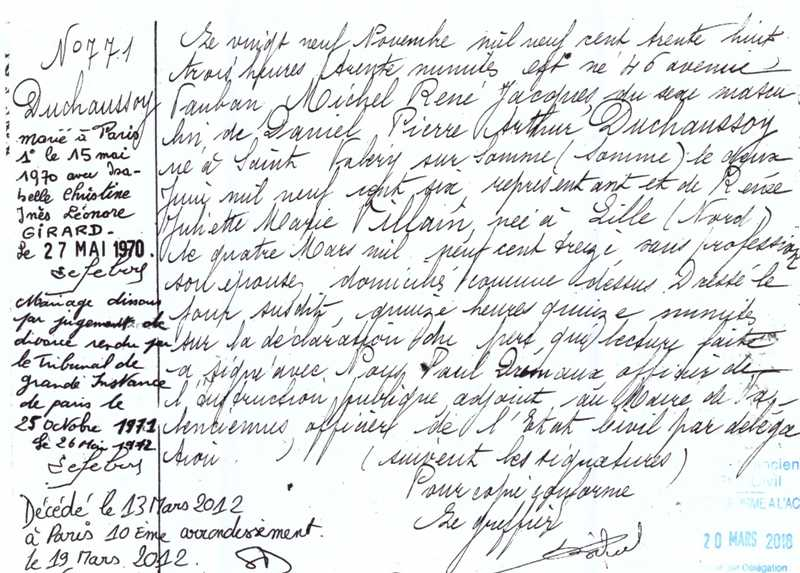 N° 771
Duchaussoy
marié à Paris
1° le 15 mai
1970 avec Isa-
belle Christine
Inès Léonore
GIRARD-
Le 27 MAI 1970.
Lefebvre
Mariage dissous
par jugement de
divorce rendu par
le Tribunal de
grande Instance
de paris le
25 Octobre 1971
Le 26 Mai 1972
Lefebvre
Décédé le 13 Mars 2012
à Paris 10 Eme arrondissement.
le 19 Mars 2012.
Le vingt neuf Novembre mil neuf cent trente huit
trois heures trente minutes est né 46 avenue
Vauban, Michel René Jacques, du sexe mascu
lin, de Daniel Pierre Arthur Duchaussoy
né à Saint Valery sur Somme (Somme) le deux
Juin mil neuf cent six représentant et de Renée
Juliette Marie Villain, née à Lille (Nord)
le quatre Mars mil neuf cent treize sans profession
son épouse, domiciliés comme dessus Dressé le
jour susdit, quinze heures quinze minutes
sur la déclaration du père qui, lecture faite
a signé avec Nous, Paul officier de
l'instruction publique adjoint au Maire de Va-
lenciennes officier de l'Etat Civil par déléga
tion. (suivent les signatures)
Pour copie conforme
Le greffier
ncien
ivil
RME A L'AC
20 MARS 2018
Délégation